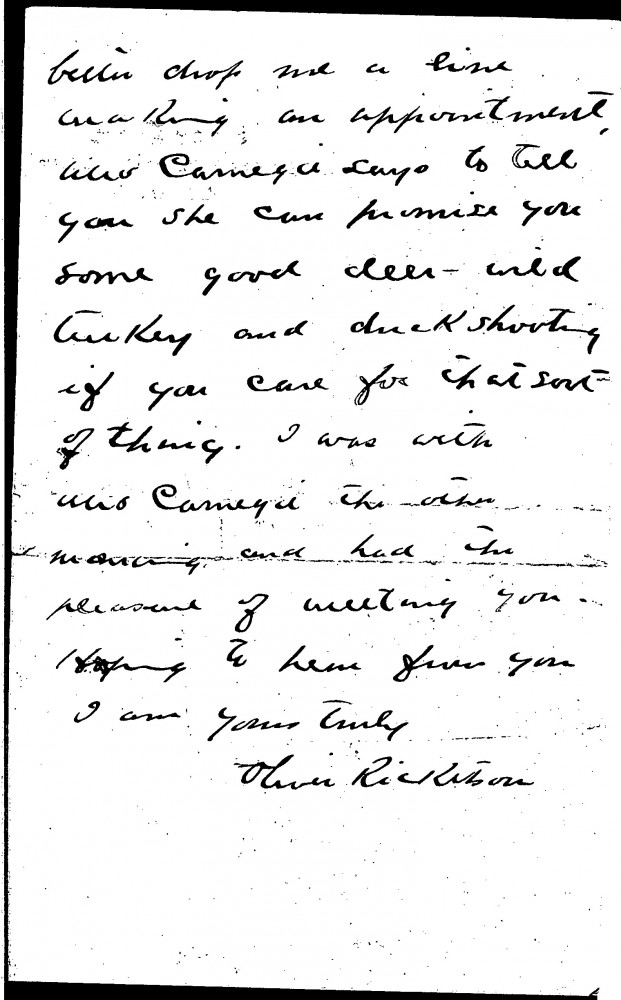 better drop me a line
making an appointment,
Mrs Carnegie says to tell
you she can promise you
some good deer - wild
turkey and duck shooting
if you care for that sort
of thing. I was with
Mrs Carnegie the other
morning and had the
pleasure of meeting you.
Hoping to hear from you
I am yours truly
Oliver Ricketson